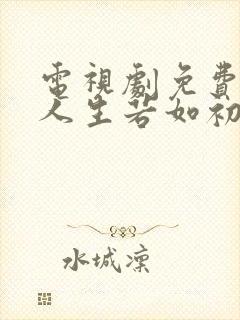 電視劇免費
人生若如初
水城凜